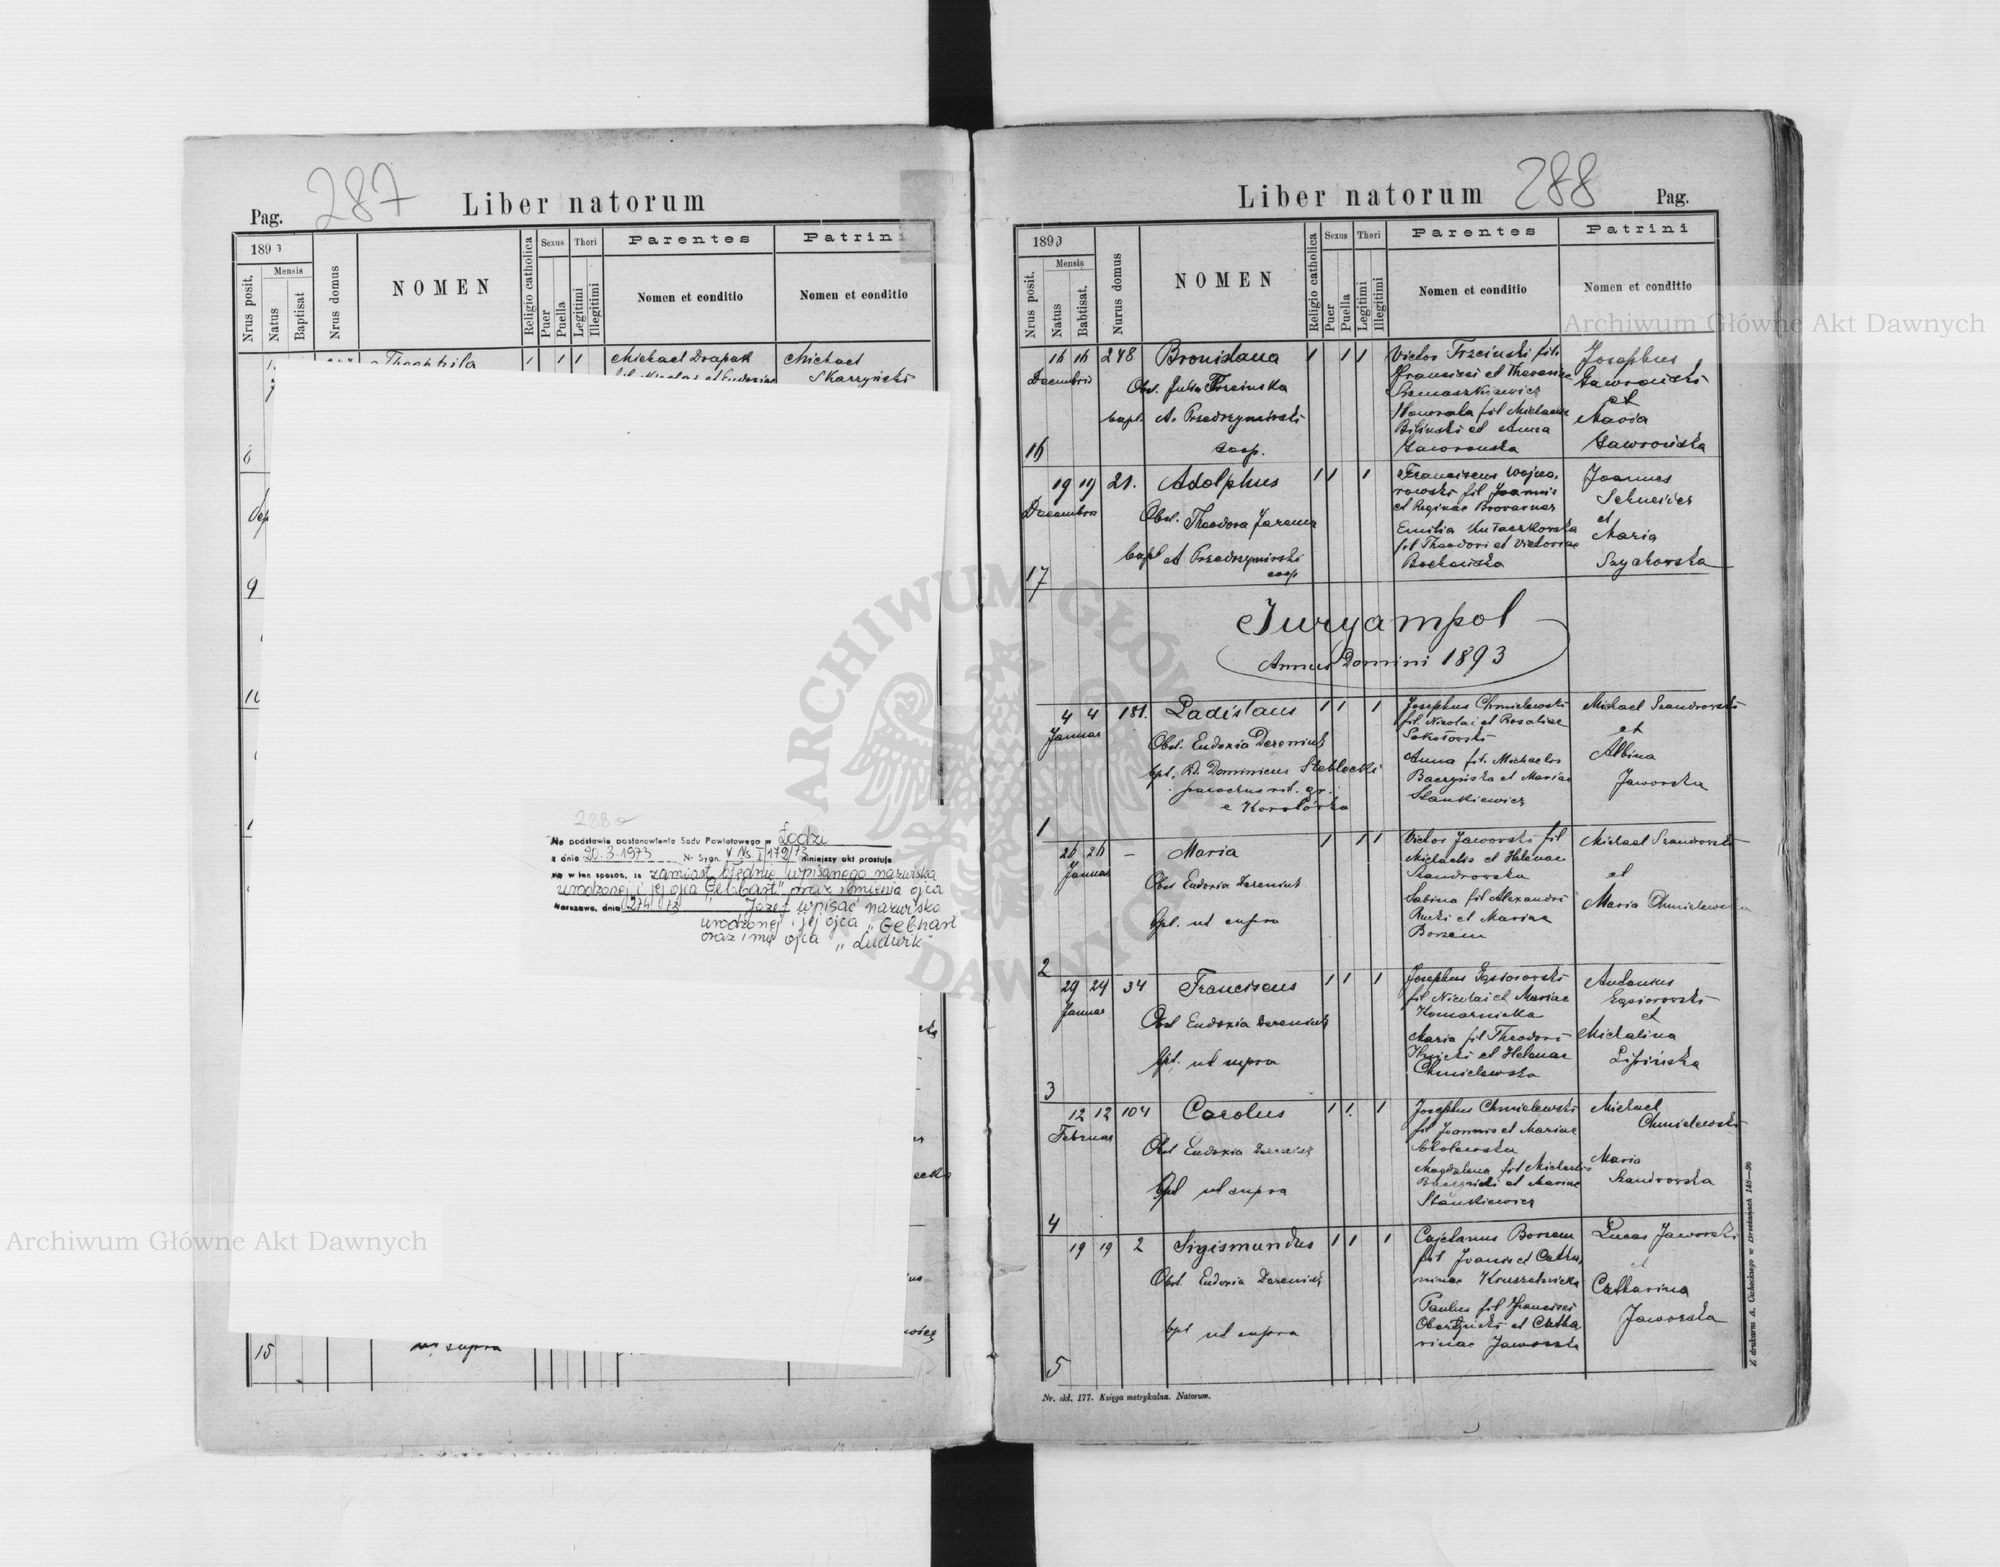 287
Pag.
Liber natorum
1893
Nrus posit.
Mensis
Natus
Baptisat
Nrus domus
NOMEN
Religio catholica
Sexus
Puer
Puella
Thori
Legitimi
Illegitimi
Parentes
Nomen et conditio
Patrini
Nomen et conditio
Theophila
1 1 1
Michael Drapak
Michael
Skarzyński
9
288a
Na podstawie postanowienia Sądu Powiatowego w Łodzi
z dnia 20.3.1973 Nr Sygn. V Ns I 179/73 niniejszy akt prostuje
się w ten sposób, że zamiast błędnie wpisanego nazwiska
urodzonej i jej ojca „Gebbart” oraz imienia ojca
Warszawa, dnia 27.4.73 Józef wpisać nazwisko
urodzonej i jej ojca „Gebhart
oraz imię ojca „Ludwik”
15
ut supra
Liber natorum
288
Pag.
1893
Nrus posit.
Mensis
Natus
Babtisat.
Nurus domus
NOMEN
Religio catholica
Sexus
Puer
Puella
Thori
Legitimi
Illegitimi
Parentes
Nomen et conditio
Patrini
Nomen et conditio
16 16 248 Bronislaua 1 1 1
Decembris
Obst. Julia Trzcinska
bapt. A. Przedrzymirski
coop.
16
Victor Trzcinski fil.
Francisci et Theresiae
Szmaszkiewicz
Honorata fil Michaelis
Biliński et Anna
Gaworonska
Josephus
Gawroński
et
Maria
Gawrońska
19 19 21. Adolphus 1 1 1
Decembris
Obst. Theodora Jarema
bapt A Przedrzymirski
coop
17
Franciscus Wojna-
rowski fil Joannis
et Reginae Browarner
Emilia Kułaczkowska
fil Theodori et Victoriae
Bochenska
Joannes
et
Maria
Szychowska
Juryampol
Annus Domini 1893
4 4 181. Ladislaus 1 1 1
Januar
Obst. Eudoxia Dereniuk
bpt. Rd. Dominicus Szabłocki
parochus rit. gr.
e Korolówka
1
Josephus Chmielewski
fil. Nicolai et Rosaliae
Sokołowski
Anna fil. Michaelis
Baczyńska et Mariae
Stankiewicz
Michael Szandrowski
et
Albina
Jaworska
26 26 – Maria 1 1 1
Januar
Obst Eudoxia Dereniuk
bpt. ut supra
2
Victor Jaworski fil
Michaelis et Helenae
Szandrowska
Sabina fil Alexandri
Rucki et Mariae
Borzem
Michael Szandrowski
et
Maria Chmielewska
29 29 34 Franciscus 1 1 1
Januar
Obst Eudoxia Dereniuk
bpt. ut supra
3
Josephus Gąsiorowski
fil Nicolai et Mariae
Komarnicka
Maria fil Theodori
Ilnicki et Helenae
Chmielewska
Antonius
Gąsiorowski
et
Michalina
Lipińska
12 12 104 Carolus 1 1. 1
Februar
Obst Eudoxia Dereniuk
bpt ut supra
4
Josephus Chmielewski
fil Joannis et Mariae
Magdalena fil Michaelis
Baczyński et Mariae
Stankiewicz
Michael
Chmielewski
Maria
Szandrowska
19 19 2 Sigismundus 1 1 1
Obst. Eudoxia Dereniuk
bpt ut supra
5
Cajetanus Borzem
fil Joannis et Catha
rinae Kruszelnicka
Paulina fil Francisci
Obertyński et Catha
rinae Jaworski
Lucas Jaworski
et
Catharina
Jaworska
Nr. skł. 177. Księga metrykalna. Natorum.
Z drukarni A. Cichockiego w Brzeżanach 148—96
Archiwum Główne Akt Dawnych
Archiwum Główne Akt Dawnych
ARCHIWUM GŁÓWNE
AKT DAWNYCH